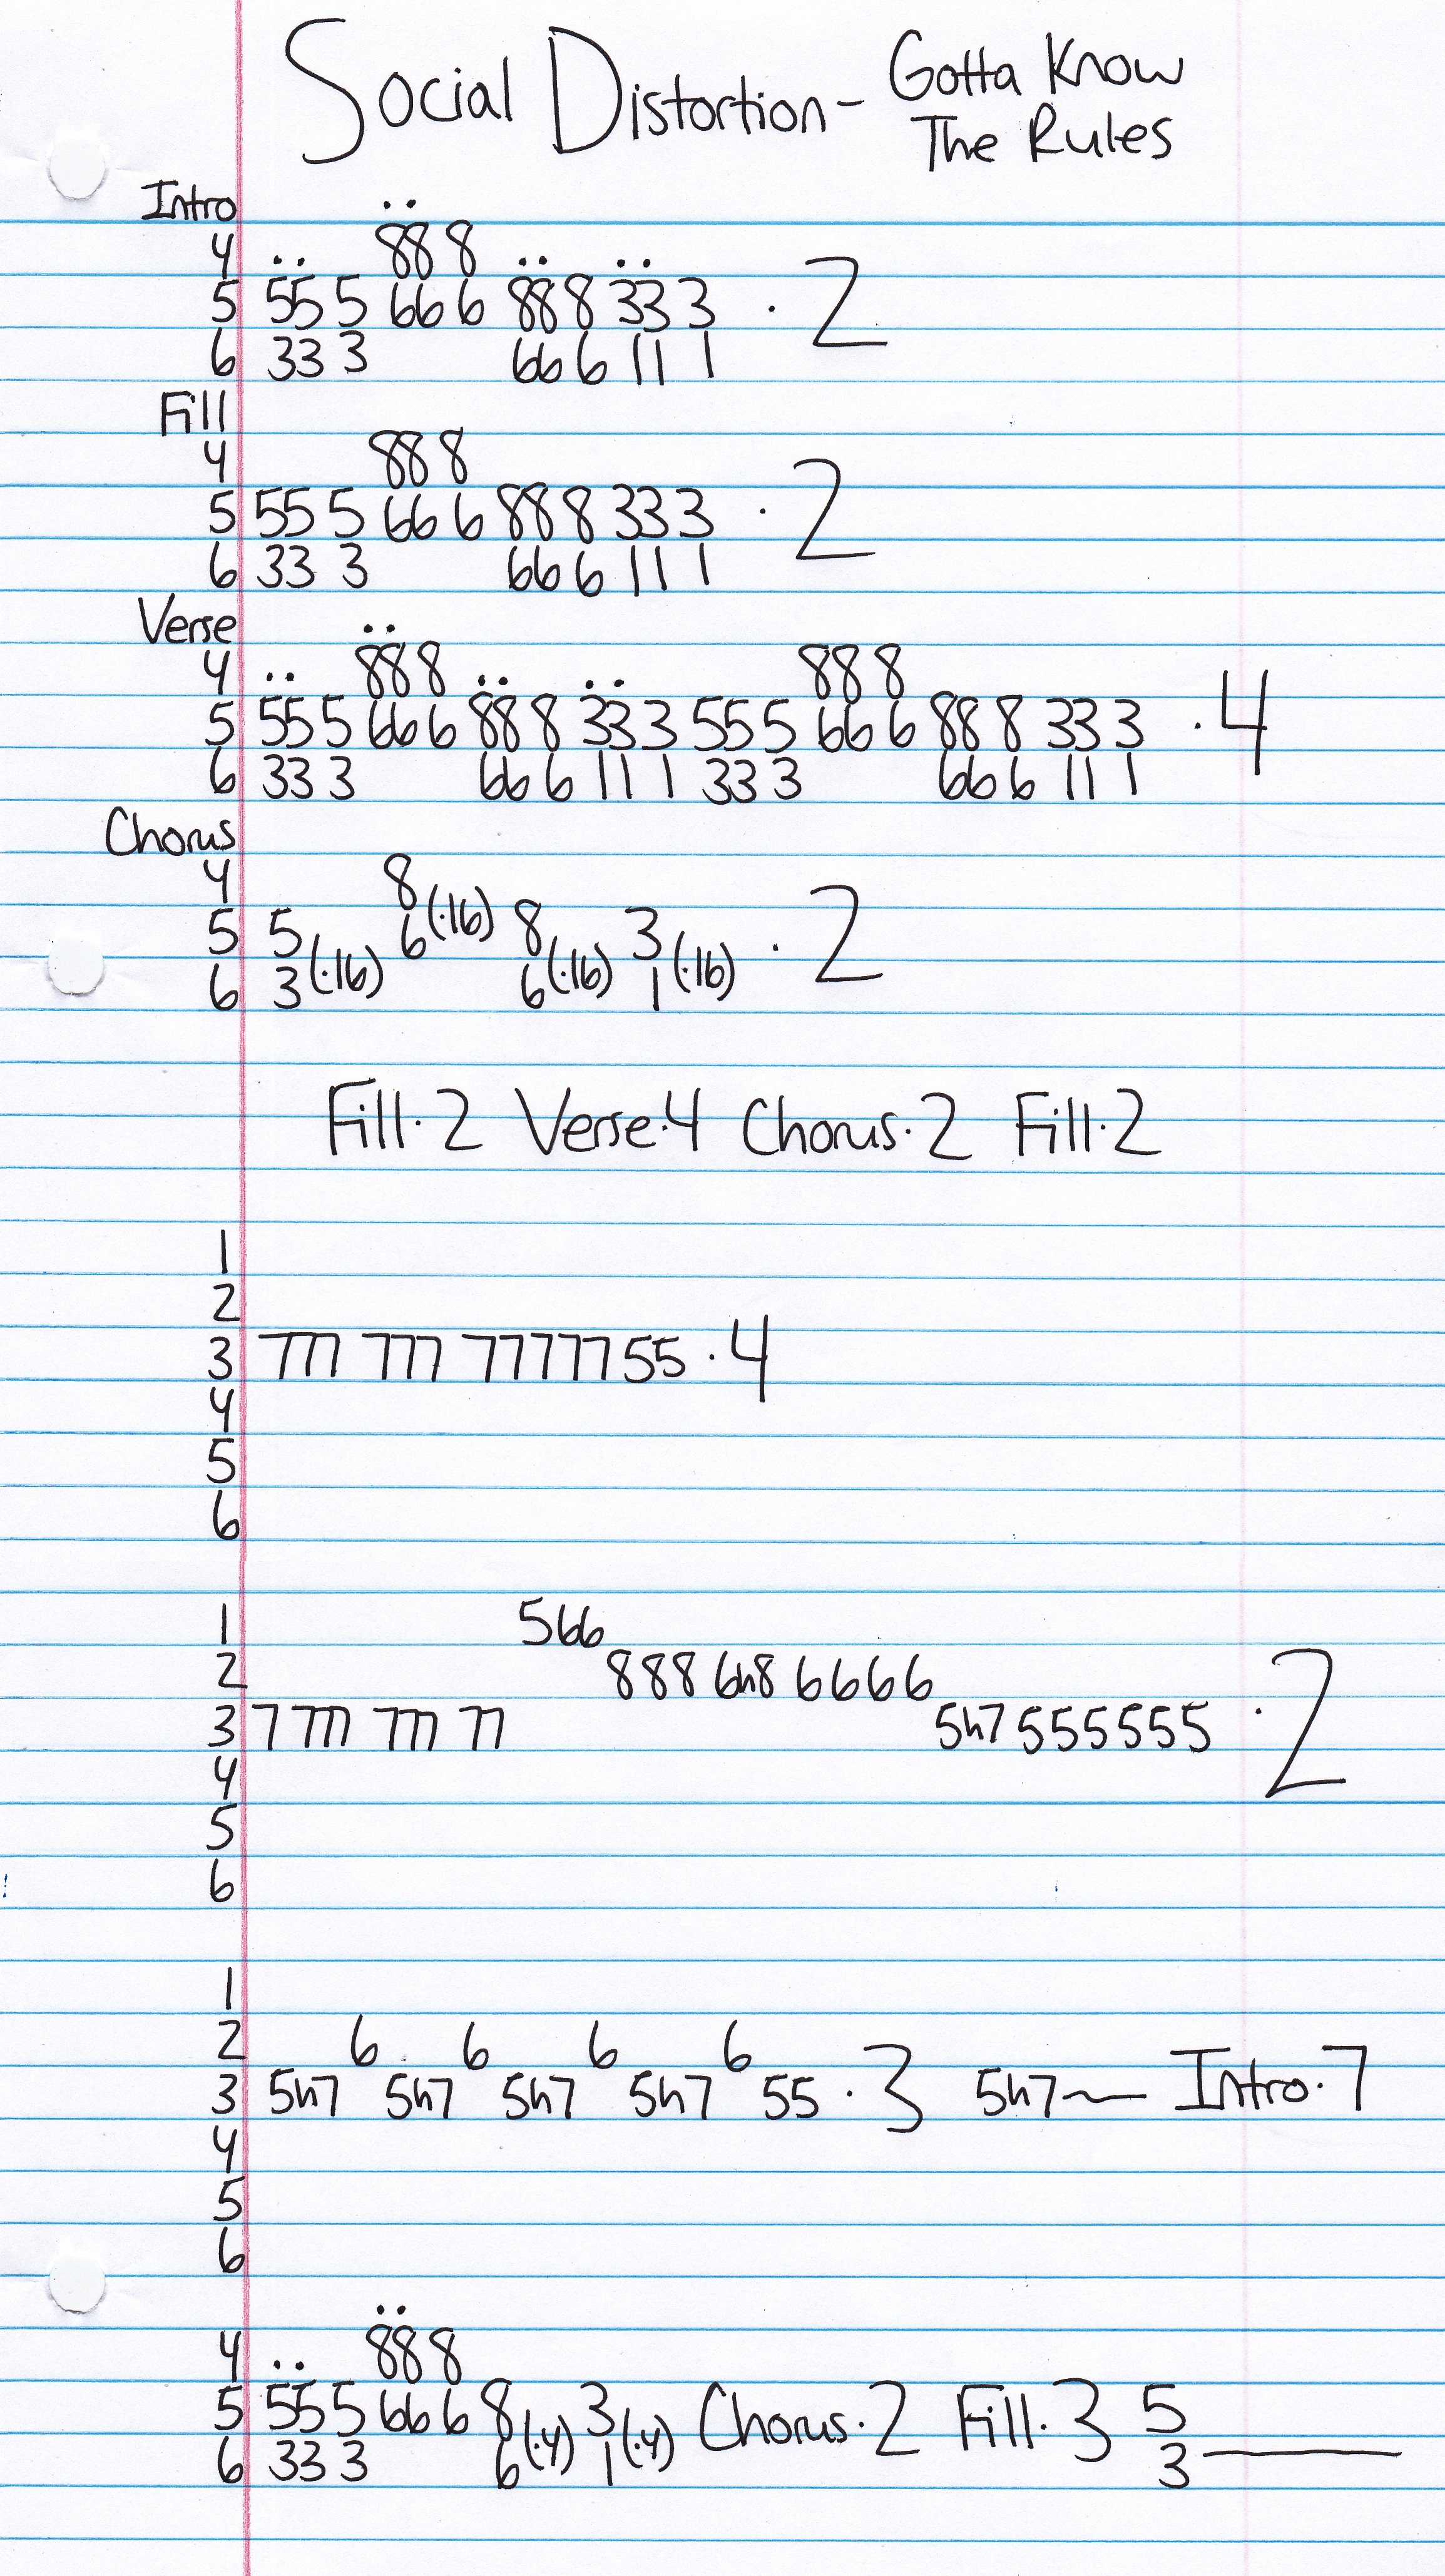 Social Distortion - Gotta Know
The Rules
Intro
4 888
5 555 666 888 333 · 2
6 333 666 111
Fill
4 888
5 555 666 888 333 · 2
6 333 666 111
Verse
4 888 888
5 555 666 888 333 555 666 888 333 · 4
6 333 666 111 333 666 111
Chorus
4 8
5 5 6 (·16) 8 3 · 2
6 3 (·16) 6 (·16) 1 (·16)
Fill·2 Verse·4 Chorus·2 Fill·2
1
2
3 777 777 7777755 · 4
4
5
6
1 566
2 888 6h8 6666
3 7 777 777 77 5h7 555555 · 2
4
5
6
1
2 6 6 6 6
3 5h7 5h7 5h7 5h7 55 · 3 5h7~ Intro·7
4
5
6
4 888
5 555 666 8 3 Chorus·2 Fill·3 5
6 333 6 (·4) 1 (·4) 3